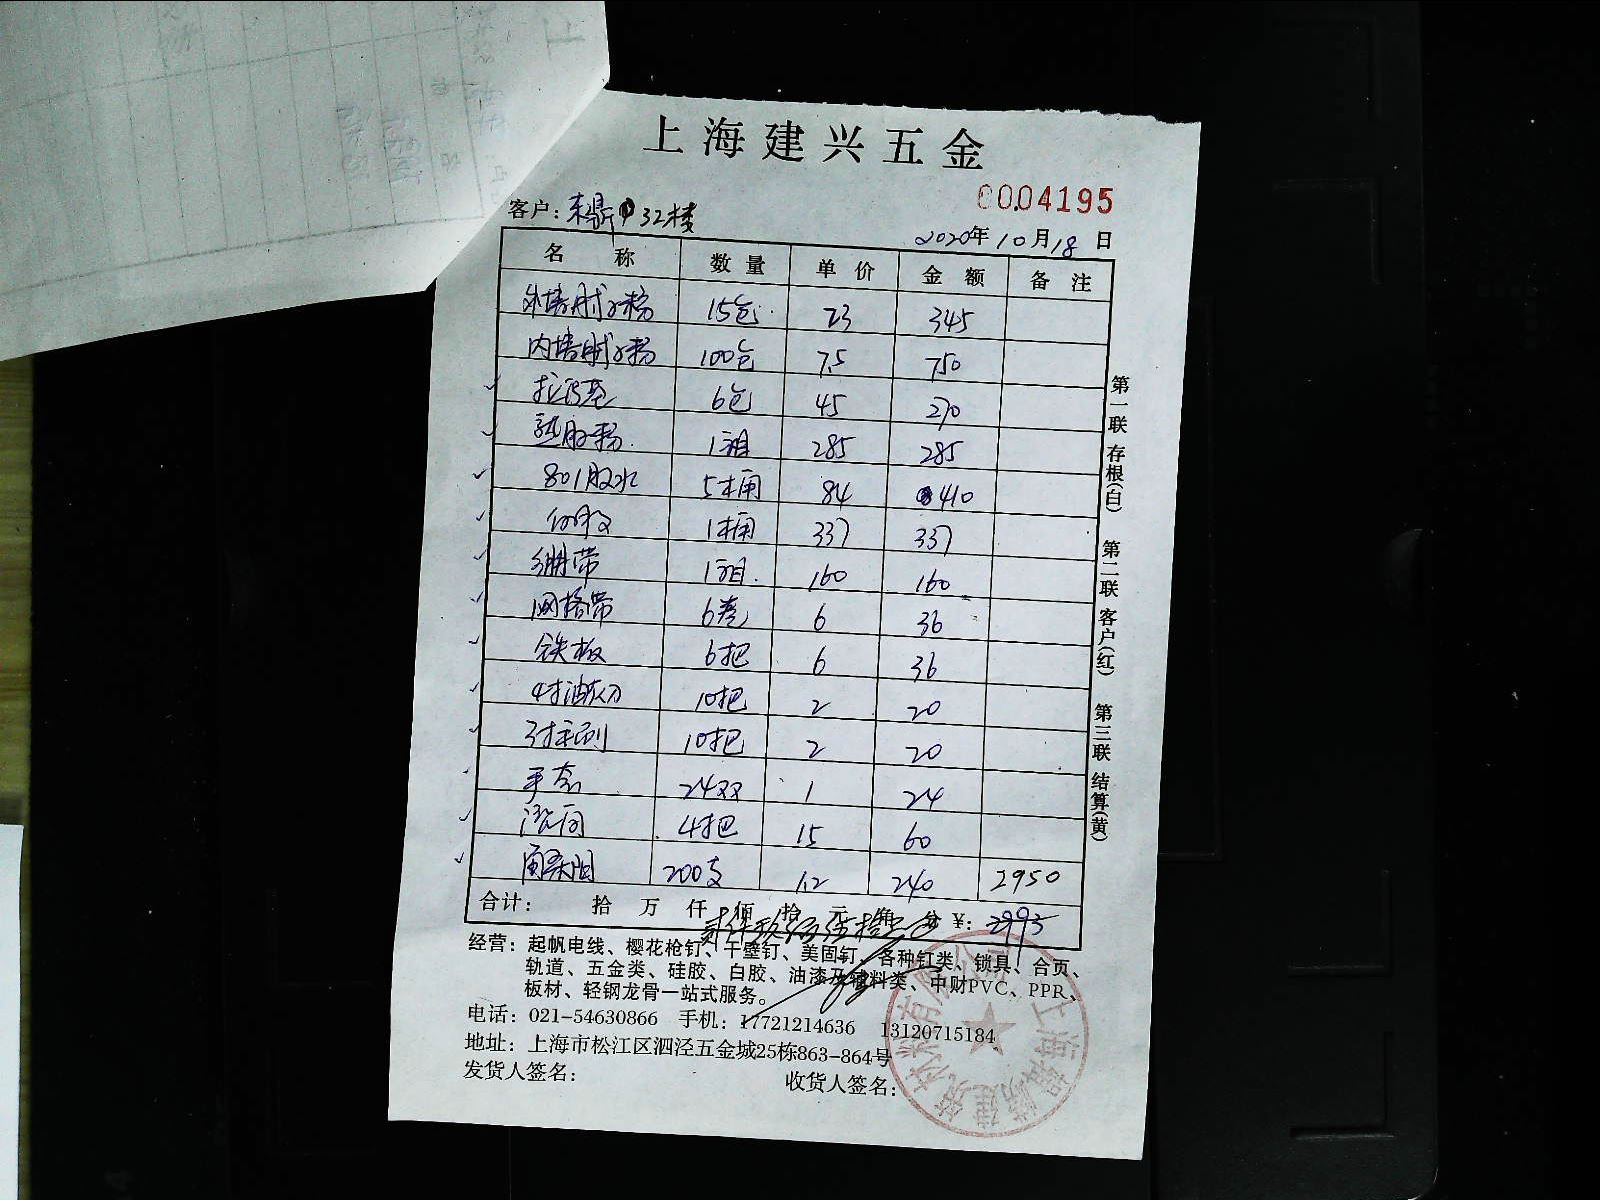 上海建兴五金
0004195
客户: 32楼
2020年10月18日
名 称 数 量 单 价 金 额 备 注
外墙腻子粉 15包 23 345
内墙腻子粉 100包 7.5 750
拉法基 6包 45 270
熟胶粉 1箱 285 285
801胶水 5桶 84 410
白胶 1桶 337 337
绷带 1箱 160 160
网格带 6卷 6 36
铁板 6把 6 36
4寸油灰刀 10把 2 20
3寸毛刷 10把 2 20
手套 24双 1 24
4把 15 60
200支 1.2 240 2950
合计: 拾 万 仟 佰 拾 元 角 分 ¥: 2993
经营: 起帆电线、樱花枪钉、干壁钉、美固钉、各种钉类、锁具、合页、
轨道、五金类、硅胶、白胶、油漆及辅料类、中财PVC、PPR、
板材、轻钢龙骨一站式服务。
电话: 021-54630866 手机: 17721214636 13120715184
地址: 上海市松江区泗泾五金城25栋863-864号
发货人签名: 收货人签名:
第一联 存根(白) 第二联 客户(红) 第三联 结算(黄)